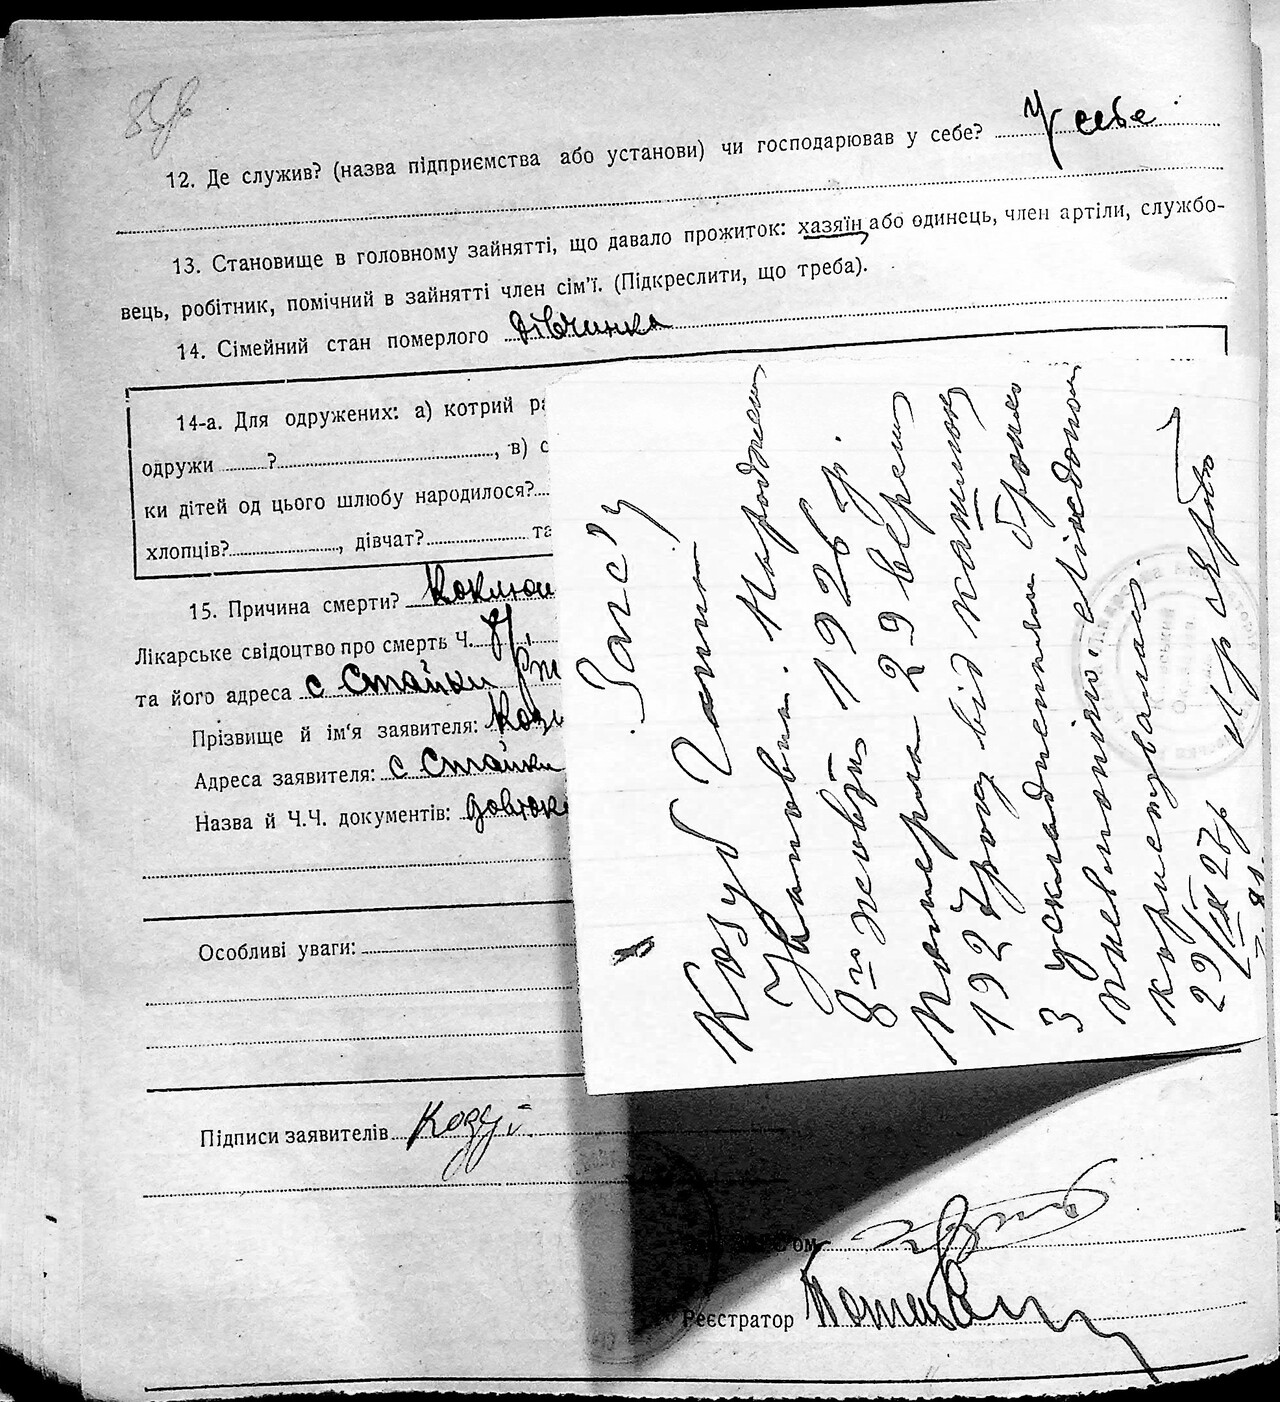 12. Де служив? (назва підприємства або установи) чи господарював у себе? У себе
13. Становище в головному зайнятті, що давало прожиток: хазяїн або одинець, член артіли, службо-
вець, робітник, помічний в зайнятті член сім'ї. (Підкреслити, що треба).
14. Сімейний стан померлого дівчинка
14-а. Для одружених: а) котрий
одружи ? , в)
ки дітей од цього шлюбу народилося?
хлопців? , дівчат? та
15. Причина смерти? Коклюш
Лікарське свідоцтво про смерть Ч.
та його адреса с Стайки
Прізвище й ім'я заявителя:
Адреса заявителя: с Стайки
Назва й Ч.Ч. документів:
Особливі уваги:
Підписи заявителів Козуб
Реєстратор
Загс'у
Козуб Ганна
Івановна. Народжена
8го жовтня 1926 р.
Померла 29 вересня
1927 року від кашлюку
з ускладненням бронхо
пневмонією. Лікдопом.
користувалась.
29/IX 27 р.